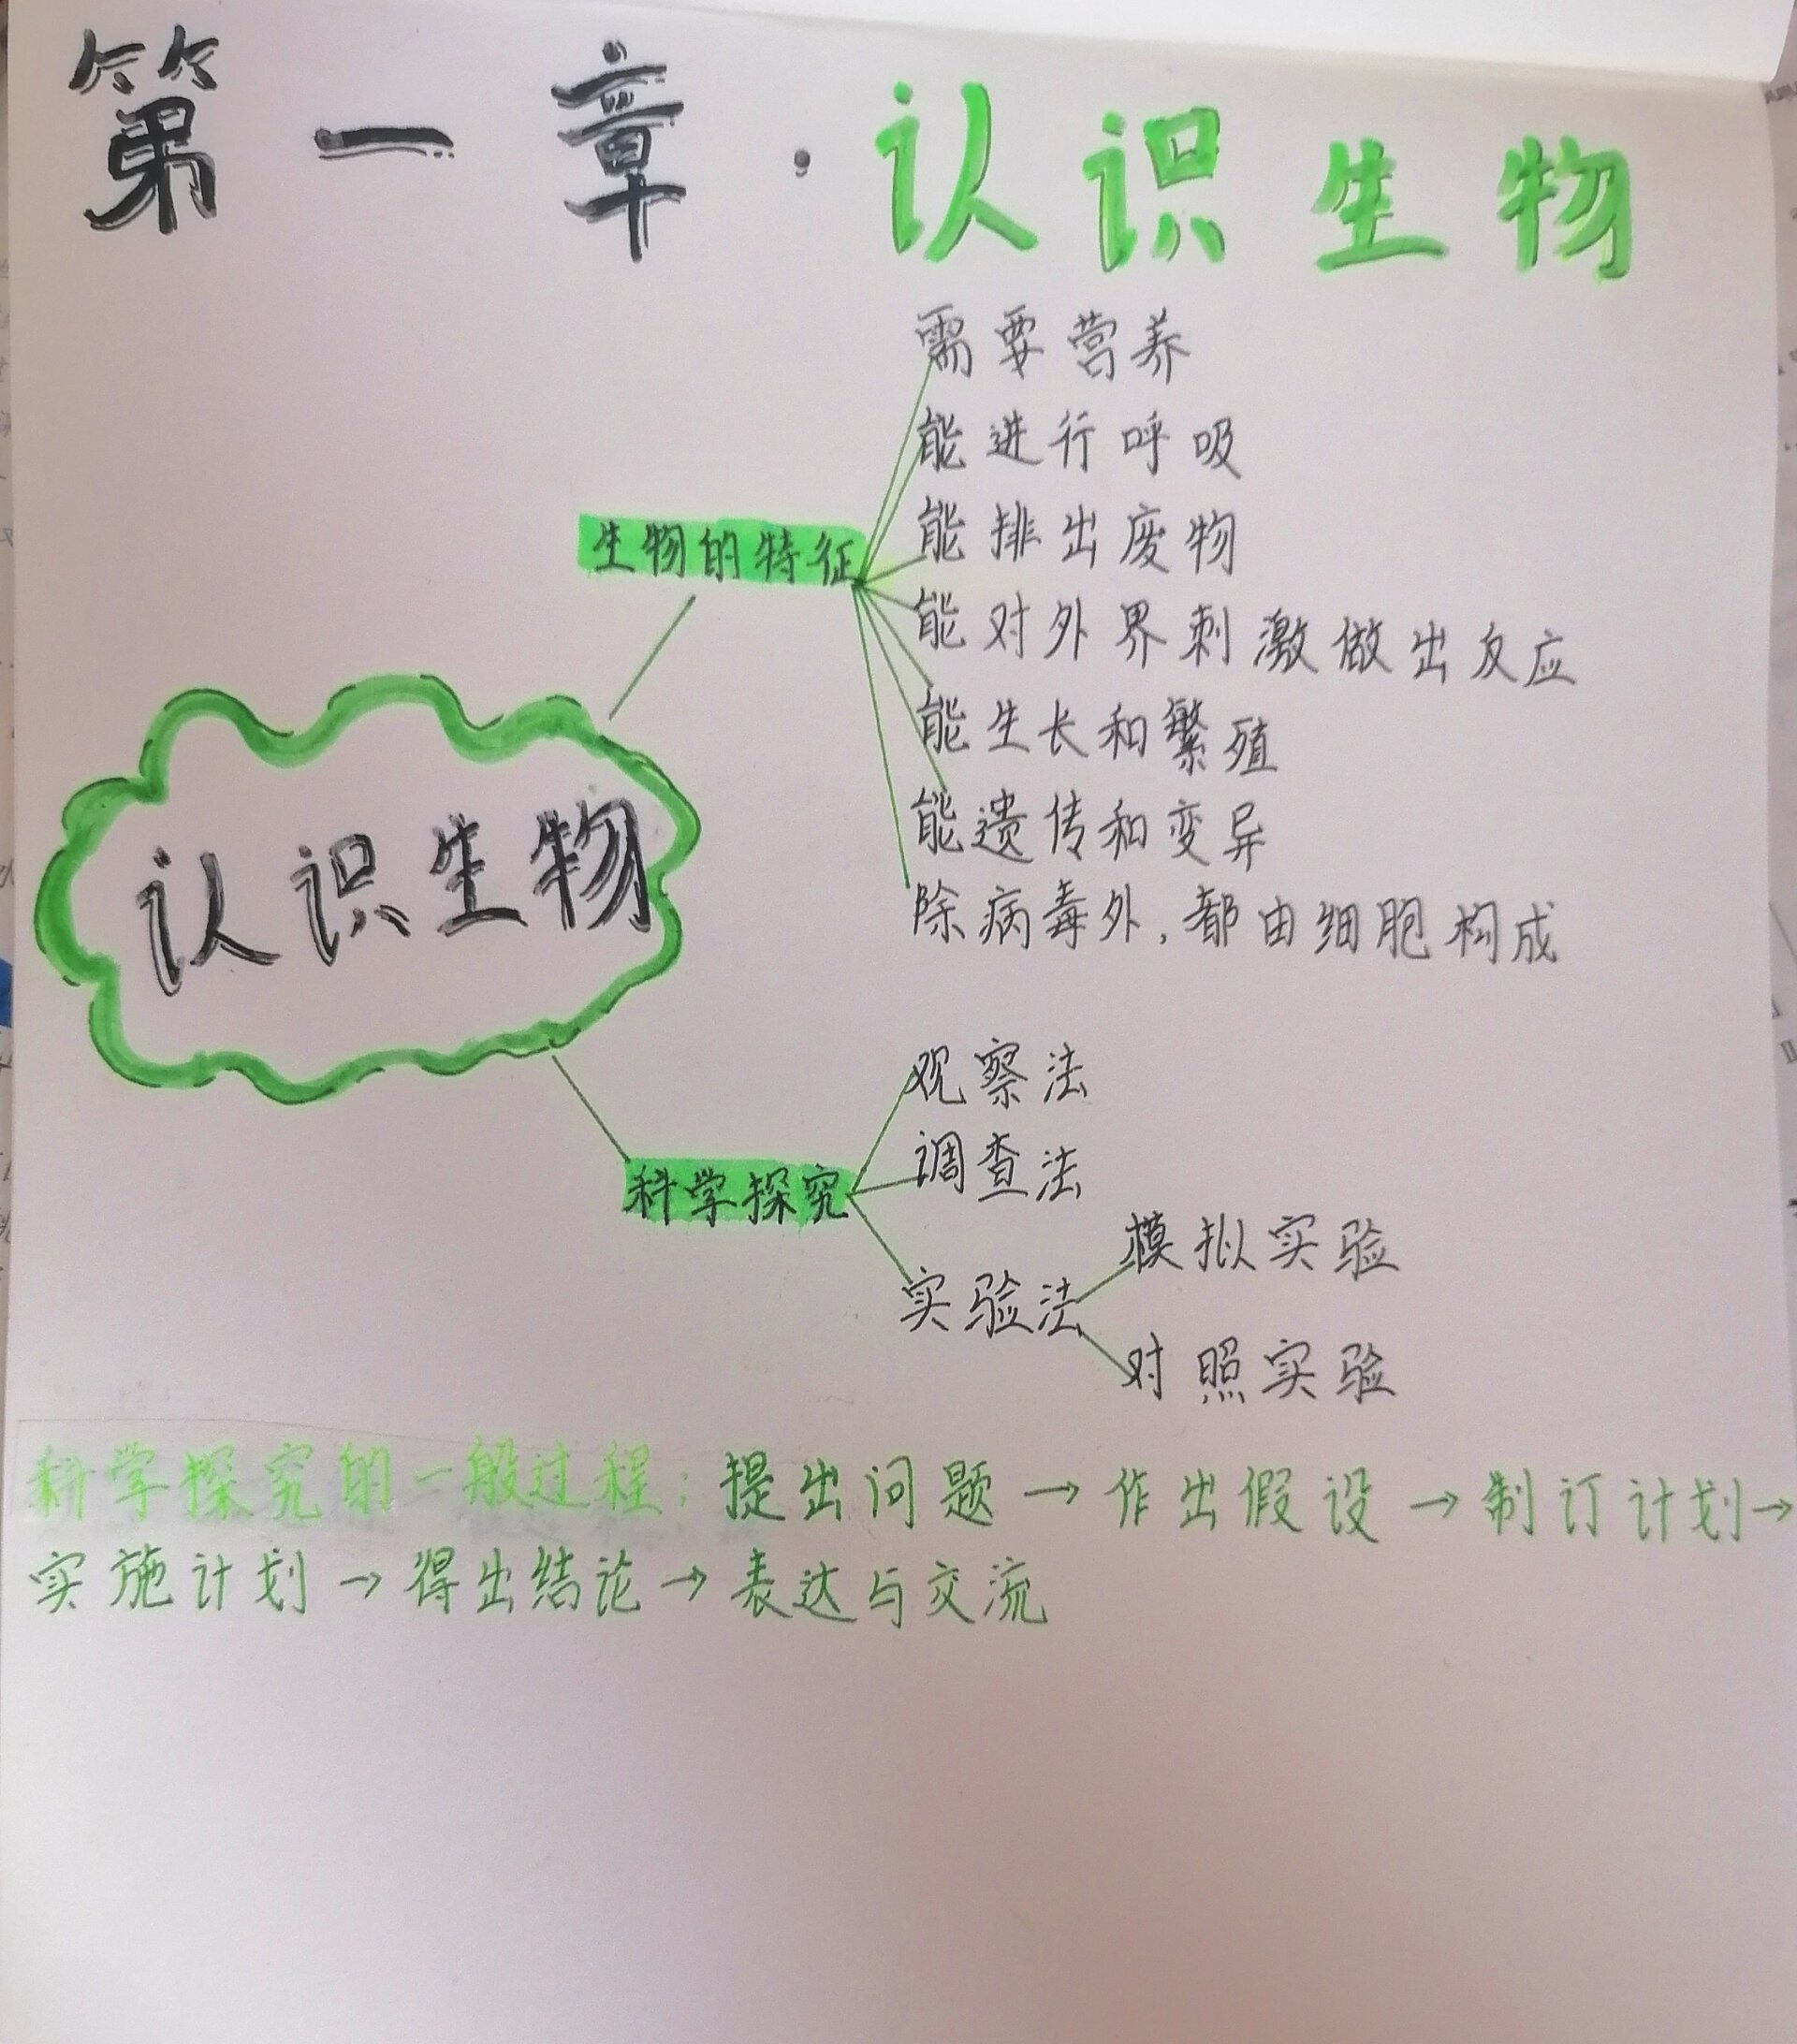 第一章·认识生物
需要营养
能进行呼吸
能排出废物
生物的特征
能对外界刺激做出反应
能生长和繁殖
能遗传和变异
除病毒外,都由细胞构成
认识生物
观察法
调查法
科学探究
模拟实验
实验法
对照实验
科学探究的一般过程:提出问题→作出假设→制订计划→
实施计划→得出结论→表达与交流